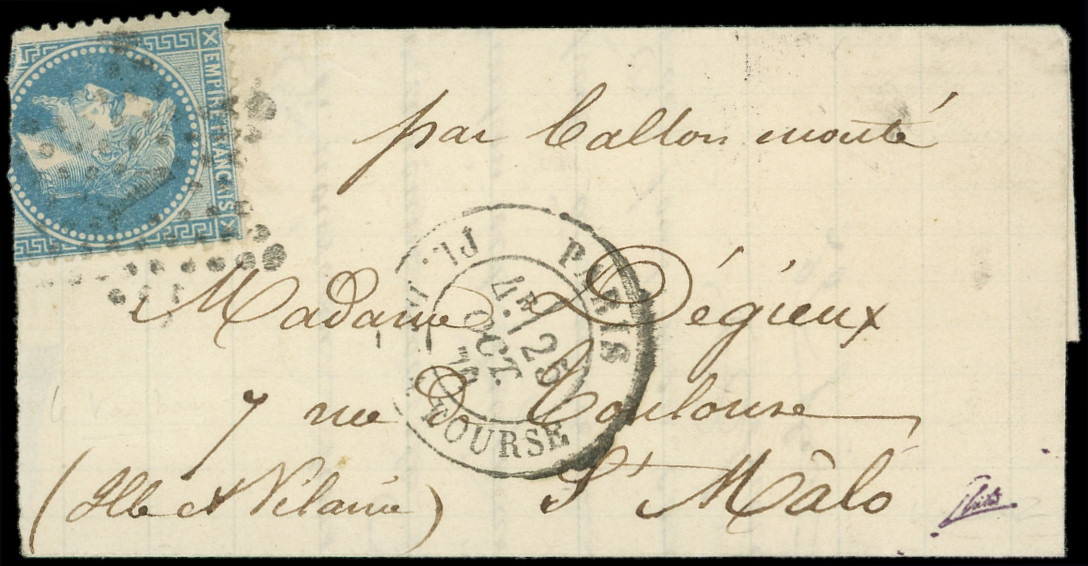 EMPIRE FRANÇAIS
par ballon monté
PARIS
PL. DE LA BOURSE
4E 26 OCT. 70
Madame Dégieux
7 rue de Toulouse
St Mâlo
(Ille et Vilaine)